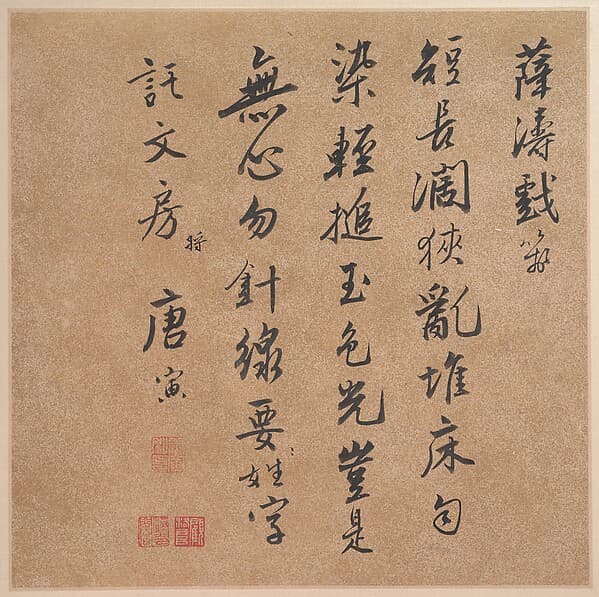 薛濤戲箋
短長濶狹亂堆床勻
染輕搥玉色光豈是
無心勿針線要姓字
託文房 將
唐寅